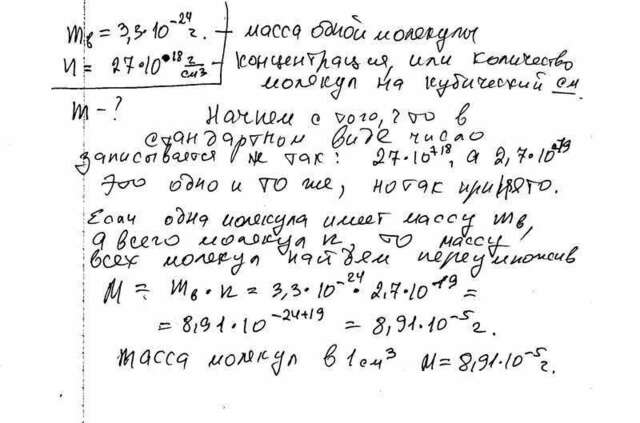 m_в = 3,3·10^-24 г. – масса одной молекулы
n = 27·10^18 г/см^3 – концентрация, или количество
молекул на кубический см.
m – ?
Начнем с того, что в
стандартном виде число
записывается не так: 27·10^+18, а 2,7·10^+19
Это одно и то же, но так принято.
Если одна молекула имеет массу m_в,
а всего молекул n, то массу
всех молекул найдем перемножив
M = m_в · n = 3,3·10^-24 · 2,7·10^19 =
= 8,91·10^-24+19 = 8,91·10^-5 г.
Масса молекул в 1 см^3 M = 8,91·10^-5 г.